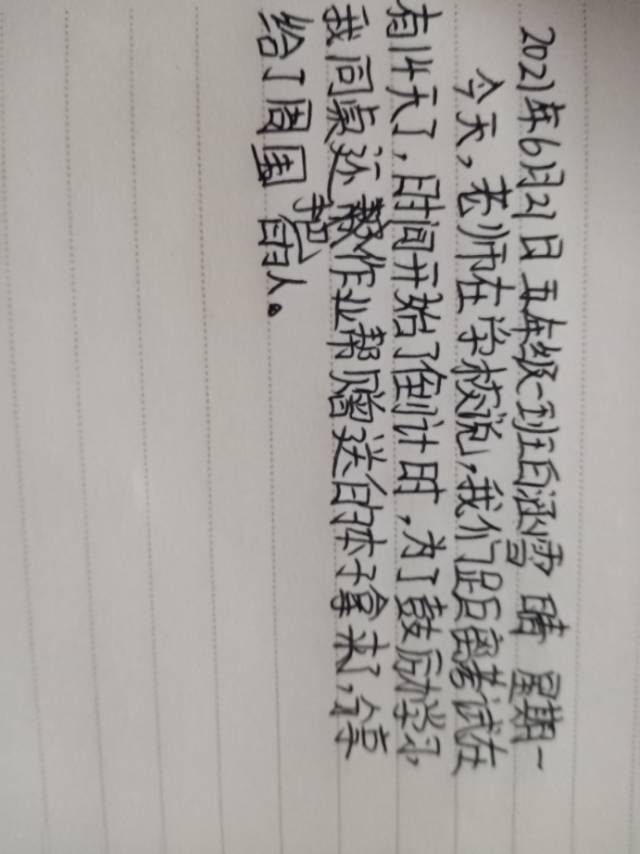 2021年6月21日 五年级一班白涵雪 晴 星期一
今天,老师在学校说,我们距离考试在
有14天了,时间开始了倒计时,为了鼓励学习,
我同桌还把作业帮赠送的本子拿来了,分享
给了周围的人。